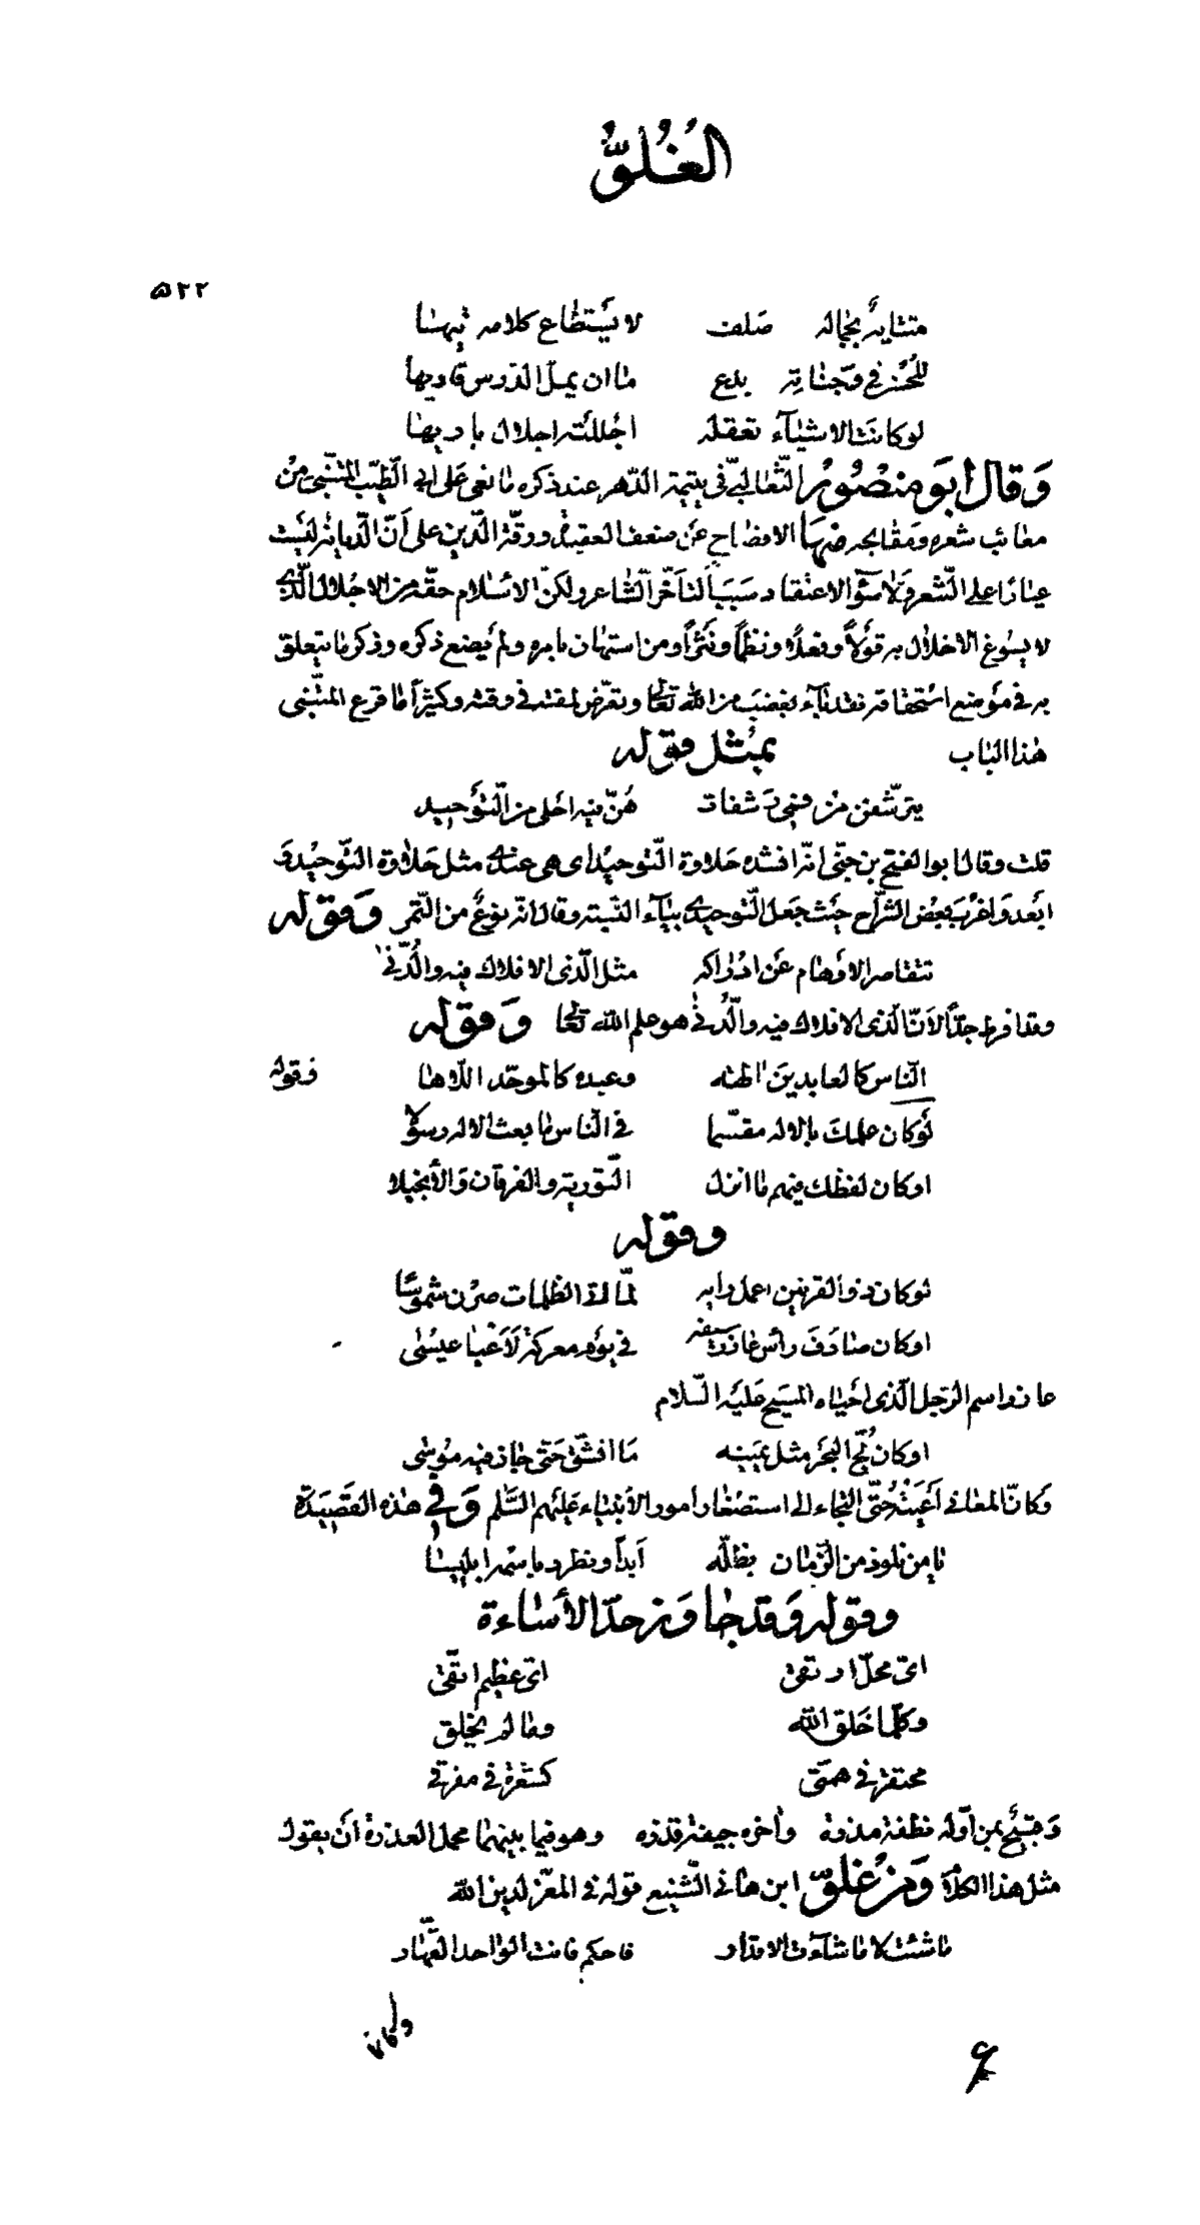 الغُلُوّ
٥٢٢
متشابهٌ بجماله صَلف لا يُستطاع كلامه تيها
للحُسن في وجناته بدع ما ان يملّ الدرس قاريها
لو كانت الاشياء تعقله اجللنه اجلال باريها
وَقال أبو منصُور الثّعالبيّ في يتيمة الدّهر عند ذكره ما نعى على ابي الطّيّب المتنّبي من
معائب شعره ومقابحه ومنها الافصاح عن ضعف العقيدة ورقّة الدّين على أنّ الدّيانة ليست
عيارًا على الشّعر ولا سوٓء الاعتقاد سَببًا لتأخّر الشّاعر ولكنّ الاسلام حقّه من الاجلال الّذي
لا يسُوغ الاخلال به قولاً وفعلاً ونظمًا ونثرًا ومن استهان بامره ولم يضع ذكره وذكر ما يتعلق
به في موضع استحقاقه فقد باء بغضب من الله تعالى وتعرّض لمقته في وقته وكثيرًا ما قرع المتنّبي
هذا الباب بمثل قوله
يترشّفن من فمي رَشفات هُنّ فيه احلى من التّوحيد
قلت وقال ابو الفتح بن جنّي انّ انشده حلاوة التّوحيد اي هي عندي مثل حلاوة التّوحيد وَ
ابعد وَاغرب بعض الشّراح حيث جعل التّوحيدي بياء النّسبة وقال انّه نوعٌ من التّمر وَقوله
تتقاصر الاوهام عن ادراكه مثل الّذي الافلاك فيه والدّنى
وقد افرط جدًّا لانّ الّذي الافلاك فيه والدّنى هو علم الله تعالى وَقوله
النّاس كالعابدين آلهة وعبده كالموحّد اللّاها وقوله
لو كان علمك بالاله مقسّما في النّاس ما بعث الاله رسولا
او كان لفظك فيهم ما انزل التّورية والفرقان وَالأنجيلا
وقوله
لو كان ذو القرنين اعمل رايه لمّا اتى الظلمات صرن شموسًا
او كان صادَفَ رأس عازر سيفه في يوم معركة لَأعيا عيسى
عازر اسم الرّجل الّذي احياه المسيح عَليه السّلام
او كان لجّ البحر مثل يمينه مَا انشقّ حَتّى جاز فيه موسى
وكانّ المعاني أعيته حتّى التجاء الى استصغار امور الأنبياء عليهم السّلم وَفي هذه القصيدة
يا من نلوذ من الزّمان بظلّه أبدًا ونطرد باسمه ابليسا
وقوله وقد جاوز حدّ الأساءة
ايّ محلّ ارتقي ايّ عظيم اتّقي
وكلّما خلق الله وما لم يخلق
محتقر في همّتي كشعرة في مفرقي
وَقبيح بمن اوّله نطفة مذرة وأخره جيفة قذره وهو فيما بينهما محمل العذرة أن يقول
مثل هذا الكلام وَمن غلوّ ابن هاني الشّنيع قوله في المعزّ لدين الله
ما شئت لا ما شاءت الاقدار فاحكم فانت الواحد القهّار
وكانما